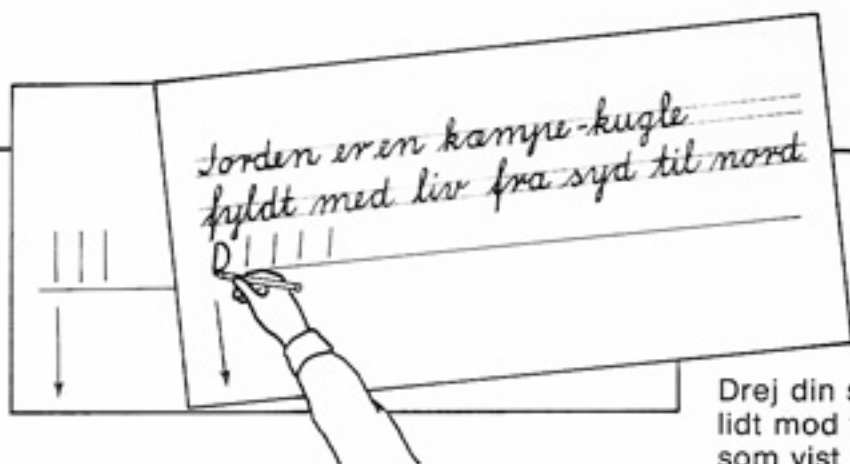 Jorden er en kæmpe-kugle
fyldt med liv fra syd til nord
D
Drej din
lidt mod
som vist